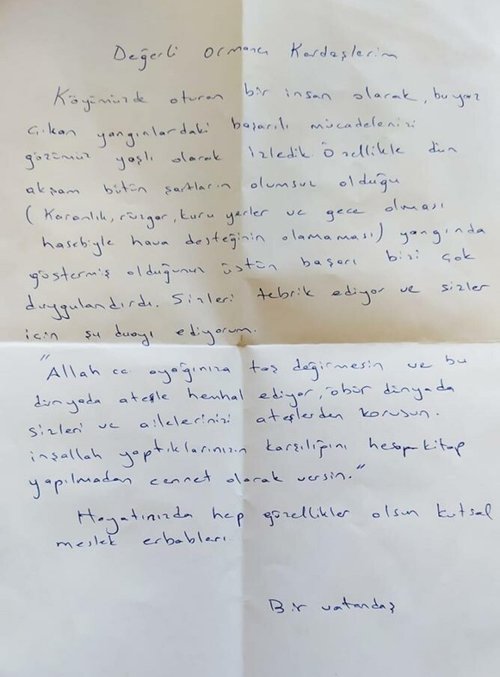 Değerli Ormancı Kardeşlerim
Köyümüzde oturan bir insan olarak, bu yaz
çıkan yangınlardaki başarılı mücadelenizi
gözümüz yaşlı olarak izledik. Özellikle dün
akşam bütün şartların olumsuz olduğu
(Karanlık, rüzgar, kuru yerler ve gece olması
hasebiyle hava desteğinin olamaması) yangında
göstermiş olduğunuz üstün başarı bizi çok
duygulandırdı. Sizleri tebrik ediyor ve sizler
için şu duayı ediyorum.
"Allah cc ayağınıza taş değirmesin ve bu
dünyada ateşle hemhal ediyor, öbür dünyada
sizleri ve ailelerinizi ateşlerden korusun.
inşallah yaptıklarınızın karşılığını hesap kitap
yapılmadan cennet olarak versin."
Hayatınızda hep güzellikler olsun kutsal
meslek erbabları.
Bir vatandaş